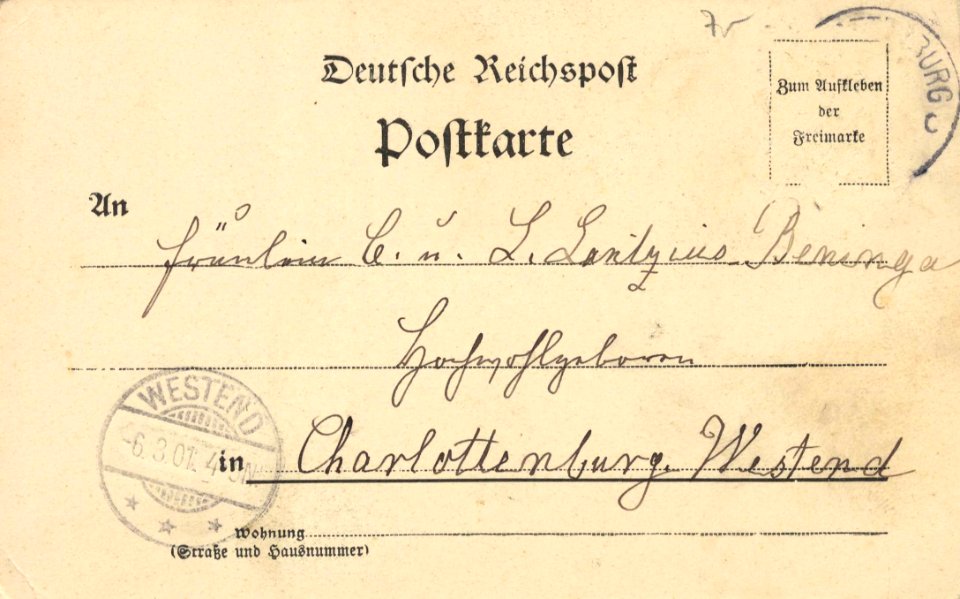 Deutsche Reichspost
Postkarte
Zum Aufkleben
der
Freimarke
BURG
An
Fräulein C. u. L. Lantzius Beninga
Hochwohlgeboren
WESTEND
-6.3.01. 4
in Charlottenburg. Westend
Wohnung
(Straße und Hausnummer)